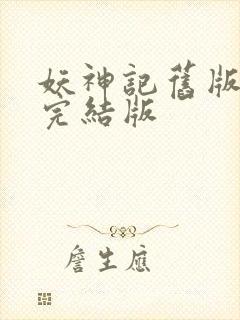 妖神記舊版
完結版
詹生應